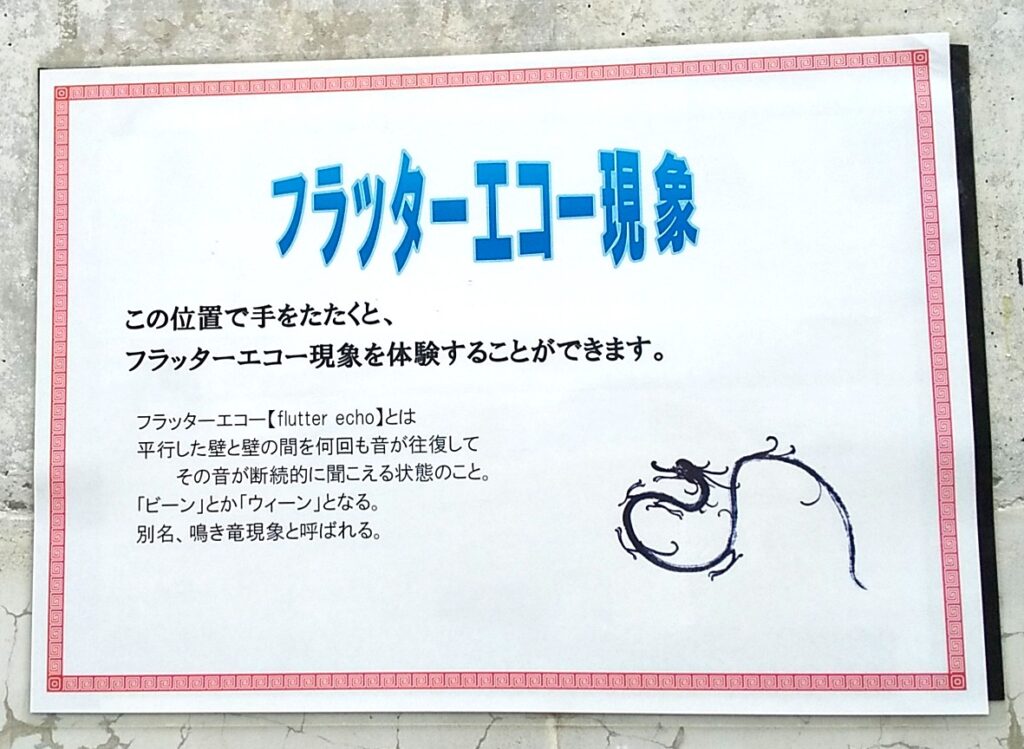 フラッターエコー現象
この位置で手をたたくと、
フラッターエコー現象を体験することができます。
フラッターエコー【flutter echo】とは
平行した壁と壁の間を何回も音が往復して
その音が断続的に聞こえる状態のこと。
「ビーン」とか「ウィーン」となる。
別名、鳴き竜現象と呼ばれる。